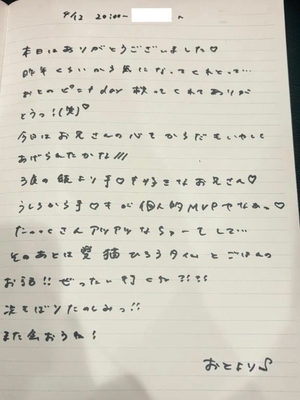 9/12 20:00~ ~
本日はありがとうございました♡
昨年くらいから気になってくれとって…
おとのピﾝﾅday 狙ってくれてありが
とうっ!(笑)♡
今日はお兄さんの心もからだもいやして
あげられたかな///
3度の飯より手♡すが好きなお兄さん♡
うしろから手♡すが個人的MVPやなぁっ♡
たっっくさんアツアツなちゅーもして…
そのあとは愛猫 ひろうタイム とごはんの
お話!! ぜったい行くね?!?!
次もばりたのしみっ!!
また会おうね!
おとより♪